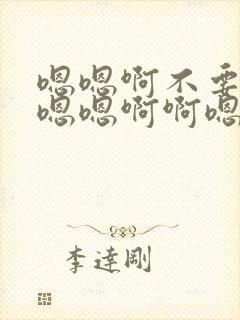 嗯嗯啊不要
嗯嗯啊啊嗯
李達剛